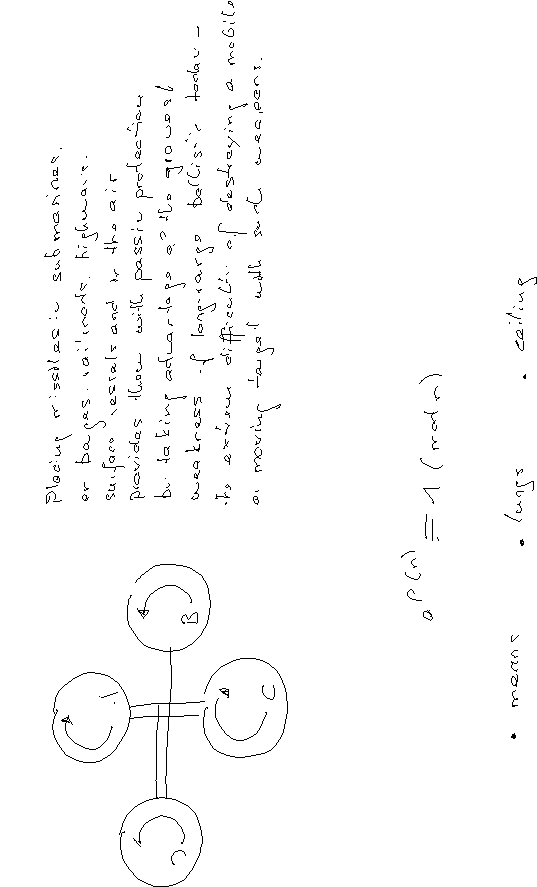 Placing missiles in submarines.
or barges, railroads, highways.
surface vessels and in the air
provides them with passive protection
by taking advantage of the gravest
weakness of long-range ballistic today -
the extreme difficulty of destroying a mobile
or moving target with such weapons.
A
B
C
D
a^φ(n) ≡ 1 (mod n)
• means
• lungs
• ceiling